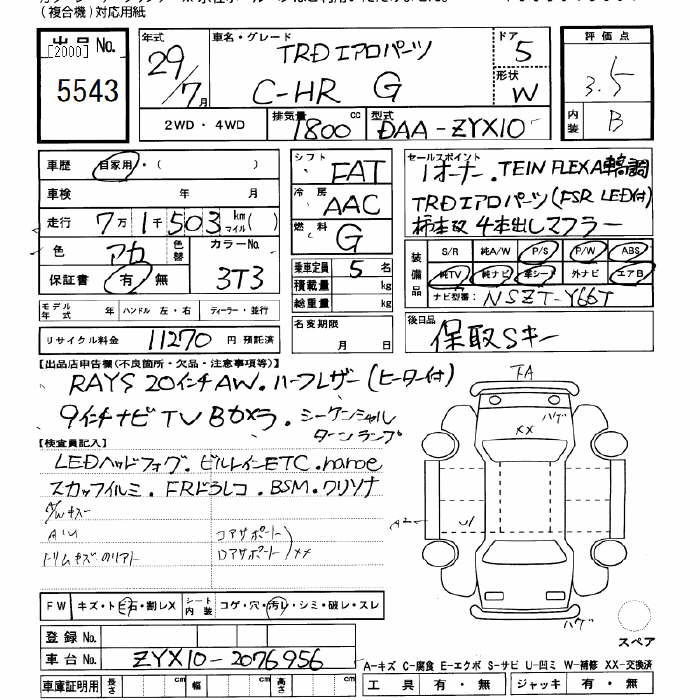 (複合機)対応用紙
出品No. [2000] 5543
年式 29/7月
車名・グレード TRDエアロパーツ
C-HR G
ドア 5
形状 W
評価点 3.5
内装 B
2WD・4WD
排気量 1800cc
型式 DAA-ZYX10
車歴 自家用・( )
車検 年 月
走行 7万1千503km マイル( )
色 アカ 色替 カラーNo. 3T3
保証書 有・無
シフト FAT
冷房 AAC
燃料 G
乗車定員 5名
積載量 kg
総重量 kg
セールスポイント
1オーナー.TEIN FLEX A車高調
TRDエアロパーツ(FSR LED付)
柿本改 4本出しマフラー
装備品 S/R 純A/W P/S P/W ABS
純TV 純ナビ 革シート 外ナビ エアB
ナビ型番: NSZT-Y66T
モデル年式 年 ハンドル 左・右 ディーラー・並行
リサイクル料金 11270円 預託済
名変期限 月 日
後日品 保取Sキー
【出品店申告欄(不良箇所・欠品・注意事項等)】
RAYS 20インチAW.ハーフレザー(ヒーター付)
9インチナビTV Bカメラ.シーケンシャル
ターンランプ
【検査員記入】
LEDヘッドフォグ.ビルトインETC.nanoe
スカッフイルミ.FRドラレコ.BSM.クリソナ
A/Wキズ
トリムキズ
コアサポート
ロアサポート XX
FA
ハゲ
XX
A2
U1
ハゲ
スペア
FW キズ・トビ石・割レX
シート内装 コゲ・穴・汚レ・シミ・破レ・スレ
登録No.
車台No. ZYX10-2076956
車庫証明用 長さ cm 幅 cm 高さ cm
A-キズ C-腐食 E-エクボ S-サビ U-凹ミ W-補修 XX-交換済
工具 有・無 ジャッキ 有・無